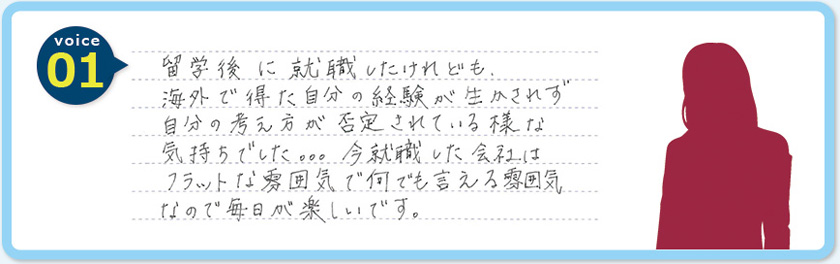 voice
01
留学後に就職したけれども、
海外で得た自分の経験が生かされず
自分の考え方が否定されている様な
気持ちでした。。。今就職した会社は
フラットな雰囲気で何でも言える雰囲気
なので毎日が楽しいです。